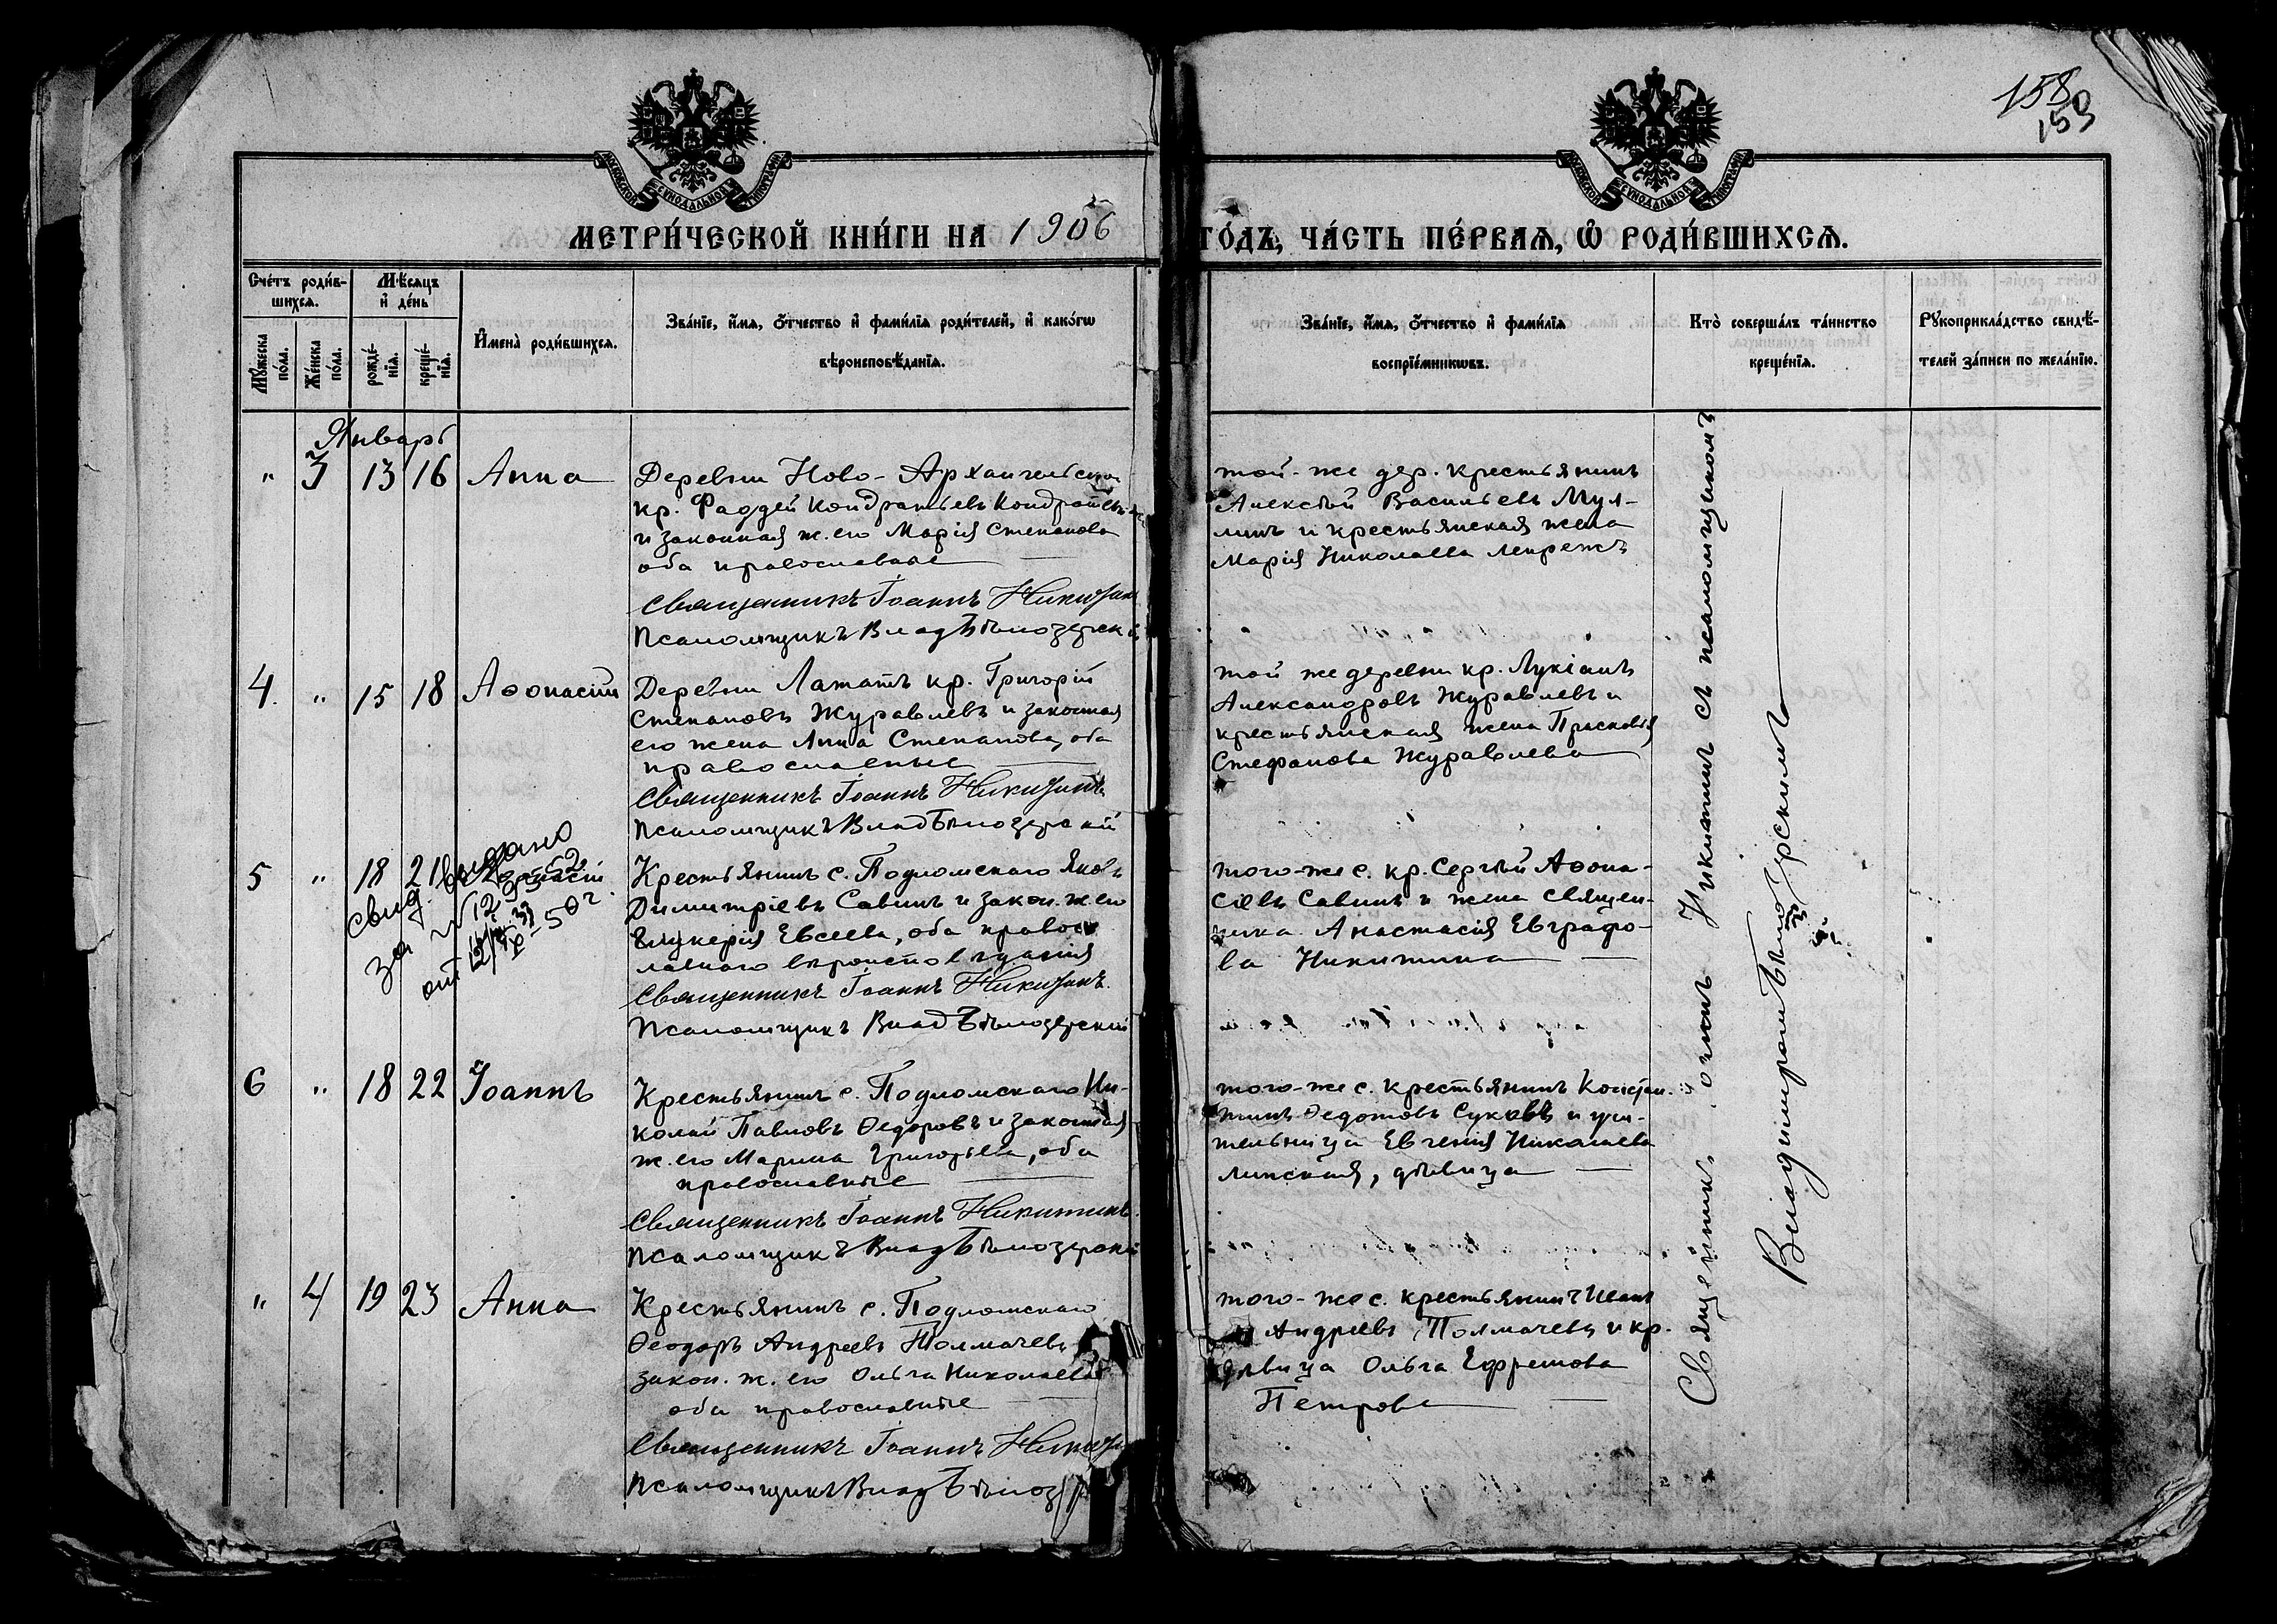 158
153
МОСКОВСКОЙ СѴНОДАЛЬНОЙ ТИПОГРАФІИ
МОСКОВСКОЙ СѴНОДАЛЬНОЙ ТИПОГРАФІИ
МЕТРИ́ЧЕСКОЙ КНИ́ГИ НА 1906
ГО́ДЪ, ЧА́СТЬ ПЕ́РВАѦ, Ѡ҆ РОДИ́ВШИХСѦ.
Сче́тъ роди́в-
шихсѧ.
Мꙋ́жеска по́ла.
Же́нска по́ла.
Мѣ́сѧцъ
и҆ де́нь
рожде́-
нїѧ.
креще́-
нїѧ.
И҆мена̀ роди́вшихсѧ.
Зва́нїе, и҆́мѧ, ѻ҆́тчество и҆ фами́лїѧ роди́телей, и҆ како́гѡ
вѣроисповѣ́данїѧ.
Зва́нїе, и҆́мѧ, ѻ҆́тчество и҆ фами́лїѧ
воспрїе́мникѡвъ.
Кто̀ соверша́лъ та́инство
креще́нїѧ.
Рꙋкоприкла́дство свидѣ́-
телей за́писи по жела́нїю.
Январь
" 3 13 16 Анна
Деревни Ново-Архангельской
кр. Фаддей Кондратьевъ
и законная ж. его Марія Степанова
оба православные
Священникъ Іоаннъ Никитинъ
Псаломщикъ Влад Бѣлозерскій
той-же дер. крестьянинъ
Алексѣй Васильевъ Мул-
линъ и крестьянская жена
Марія Николаева
4. " 15 18 Аѳонасій
Деревни кр. Григорій
Степановъ Журавлевъ и законная
его жена Анна Степанова, оба
православные
Священникъ Іоаннъ Никитинъ
Псаломщикъ Влад Бѣлозерскій
той же деревни кр. Лукіанъ
Александровъ Журавлевъ и
крестьянская жена Прасковья
Стефанова Журавлева
5 " 18 21
выдано
свид.
за №
от
Крестьянинъ с. Подломскаго Яковъ
Димитріевъ Савинъ и закон. ж его
Гликерія Евсеева, оба правос
лавнаго вѣроисповѣданія
Священникъ Іоаннъ Никитинъ.
Псаломщикъ Влад Бѣлозерскій
того-же с. кр. Сергѣй Аѳона-
сіевъ Савинъ и жена священ-
ника Анастасія Евграфо-
ва Никитина
6 " 18 22 Іоаннъ
Крестьянинъ с. Подломскаго Ни-
колай Павловъ Ѳедоровъ и законная
ж. его Марина Григорьева, оба
православные
Священникъ Іоаннъ Никитинъ.
Псаломщикъ Влад Бѣлозерскій
того-же с. крестьянинъ Констан-
тинъ Ѳедотовъ Суковъ и учи-
тельница Евгенія Николаева
Липская, дѣвица
" 4 19 23 Анна
Крестьянинъ с. Подломскаго
Ѳеодоръ Андреевъ Толмачевъ
закон. ж. его Ольга Николаева
оба православные
Священникъ Іоаннъ
Псаломщикъ Влад
того-же с. крестьянинъ Иванъ
Андреевъ Толмачевъ и кр.
дѣвица Ольга Ефремова
Петрова
Священник Іоаннъ Никитинъ съ псаломщикомъ
Владимиромъ Бѣлозерскимъ